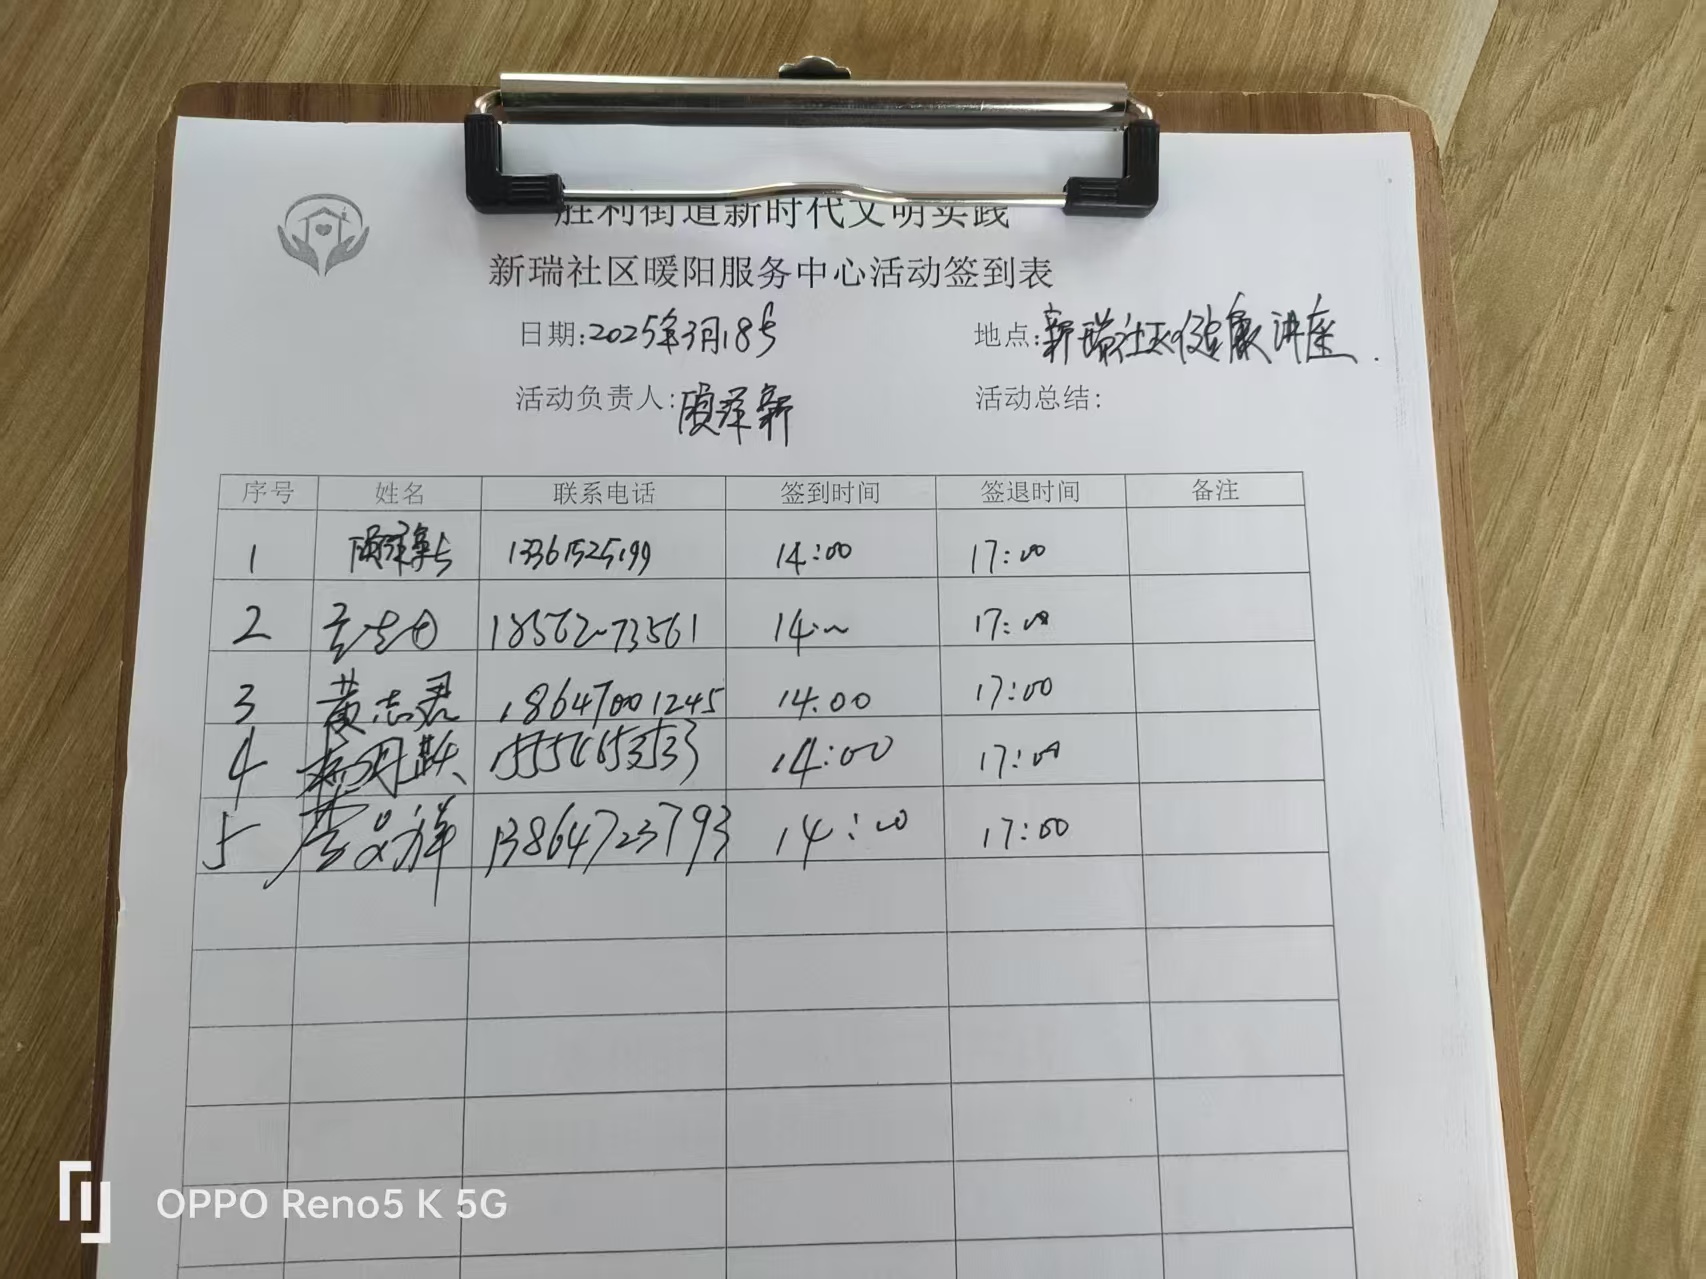 胜利街道新时代文明实践
新瑞社区暖阳服务中心活动签到表
日期:2025年3月18号 地点:新瑞社区健康讲座.
活动负责人: 活动总结:
序号 姓名 联系电话 签到时间 签退时间 备注
1 13361525199 14:00 17:00
2 14:00 17:00
3 黄志君 18647001245 14:00 17:00
4 14:00 17:00
5 13864723793 14:00 17:00
OPPO Reno5 K 5G